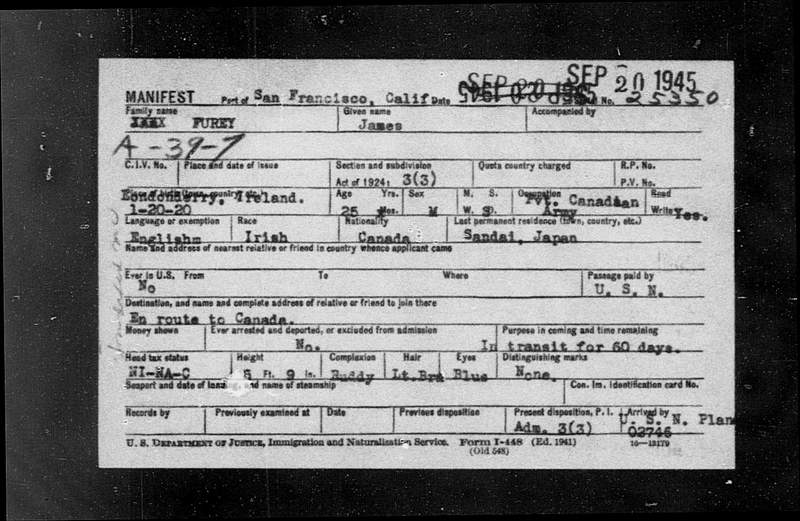 SEP 20 1945
MANIFEST Port of San Francisco, Calif Date No. 25350
Family name Given name Accompanied by
FUREY James
A-39-7
C.I.V. No. Place and date of issue Section and subdivision Quota country charged R.P. No.
Act of 1924: 3(3) P.V. No.
Londonderry, Ireland. Age Yrs. Sex M. S. Occupation Pvt. Canadian Read
1-20-20 25 Mos. M W. D. Army Write Yes.
Language or exemption Race Nationality Last permanent residence (town, country, etc.)
Englishm Irish Canada Sandai, Japan
Name and address of nearest relative or friend in country whence applicant came
Ever in U.S. From To Where Passage paid by
No U. S. N.
Destination, and name and complete address of relative or friend to join there
En route to Canada.
Money shown Ever arrested and deported, or excluded from admission Purpose in coming and time remaining
No. In transit for 60 days.
Head tax status Height Complexion Hair Eyes Distinguishing marks
NI-NA-C Ft. 9 in. Ruddy Lt.Brn Blue None.
Seaport and date of landing and name of steamship Con. Im. Identification card No.
Records by Previously examined at Date Previous disposition Present disposition, P. I. Arrived by
Adm. 3(3) U. S. N. Plane
02746
U. S. DEPARTMENT OF JUSTICE, Immigration and Naturalization Service. Form I-448 (Ed. 1941) 16—13179
(Old 548)